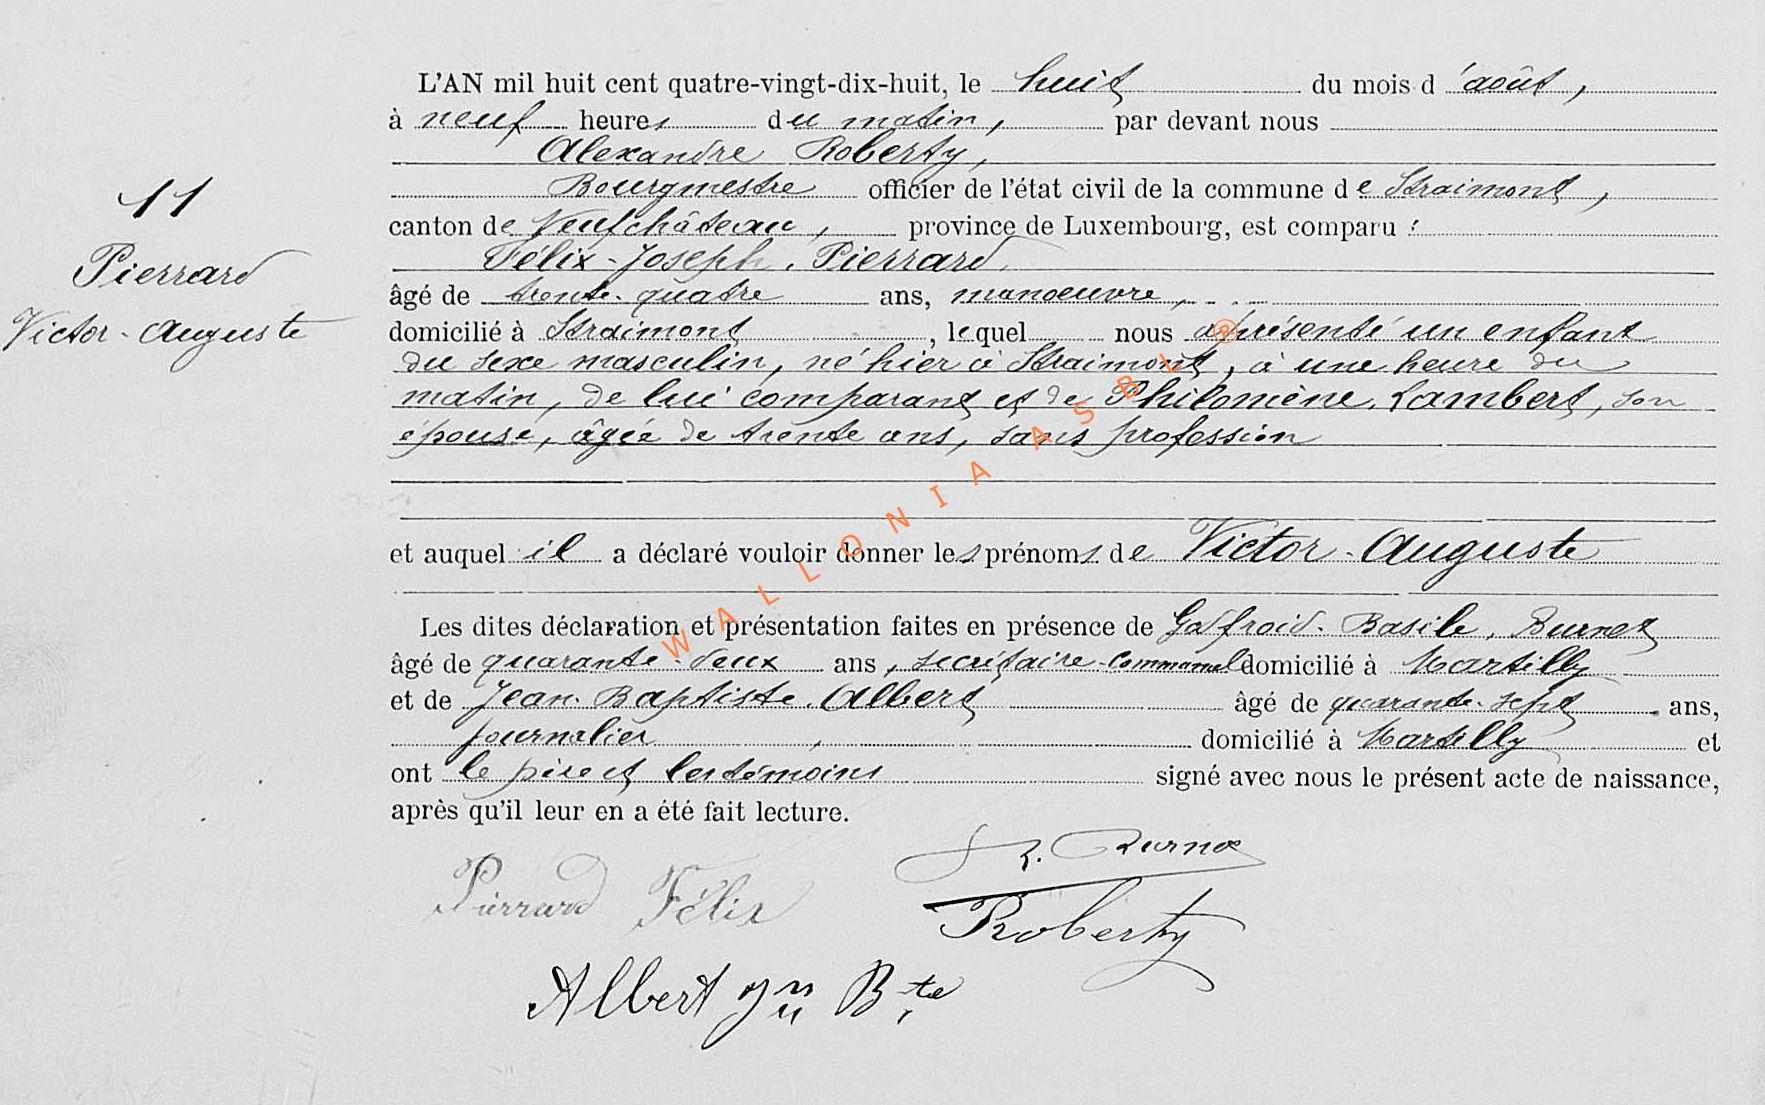 11
Pierrard
Victor-Auguste
L'AN mil huit cent quatre-vingt-dix-huit, le huit du mois d'août,
à neuf heures du matin, par devant nous
Alexandre Roberty,
Bourgmestre officier de l'état civil de la commune de Straimont,
canton de Neufchâteau, province de Luxembourg, est comparu :
Félix-Joseph Pierrard,
âgé de trente-quatre ans, manoeuvre,
domicilié à Straimont, lequel nous a présenté un enfant
du sexe masculin, né hier à Straimont, à une heure du
matin, de lui comparant et de Philomène Lambert, son
épouse, âgée de trente ans, sans profession
et auquel il a déclaré vouloir donner les prénoms de Victor-Auguste
Les dites déclaration et présentation faites en présence de Godfroid-Basile Burnet
âgé de quarante-deux ans, secrétaire-communal domicilié à Martilly
et de Jean-Baptiste Albert âgé de quarante-sept ans,
journalier, domicilié à Martilly et
ont le père et les témoins signé avec nous le présent acte de naissance,
après qu'il leur en a été fait lecture.
Pierrard Félix
Burnet
Roberty
Albert Jn Bte
WALLONIA ASBL ®